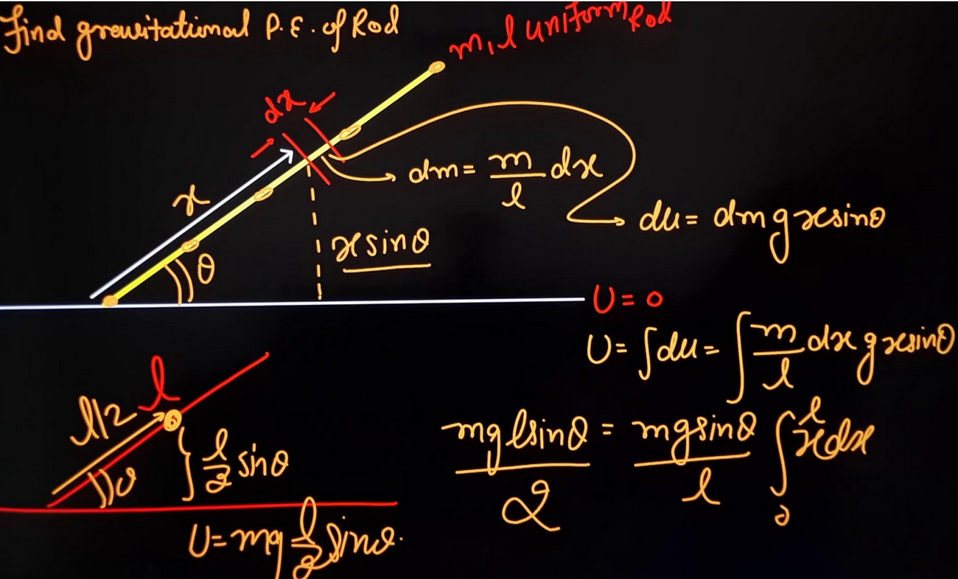 Find gravitational P.E. of Rod
m, l uniform Rod
dx
x
dm = m/l dx
du = dm g x sinθ
x sinθ
θ
U = 0
U = ∫du = ∫ m/l dx g x sinθ
l
l/2
θ
l/2 sinθ
mg l sinθ / 2 = mg sinθ / l ∫₀ˡ x dx
U = mg l/2 sinθ.